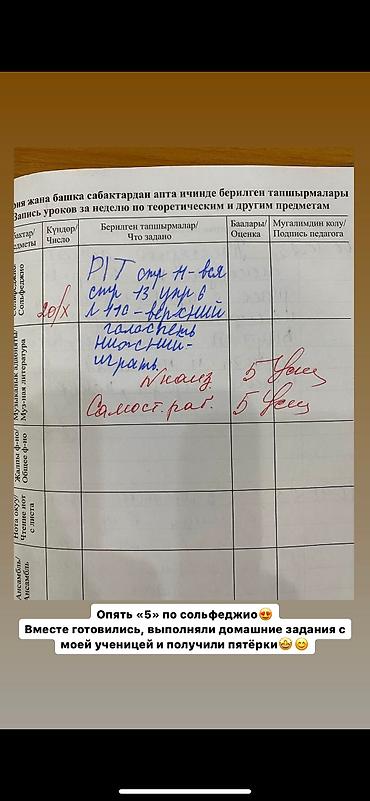 рия жана башка сабактардан апта ичинде берилген тапшырмалары
Запись уроков за неделю по теоретическим и другим предметам
бактар/
едметы
Күндөр/
Число
Берилген тапшырмалар/
Что задано
Баалары/
Оценка
Мугалимдин колу/
Подпись педагога
Сольфеджио/
Сольфеджио
20/X
Р/Т стр 11-вся
стр 13 упр 6
верхний
голос петь
нижний-
играть.
Музыкалык адабияты/
Муз-ная литература
5
Самост. раб. 5
Жалпы ф-но/
Общее ф-но
Нота окуу/
Чтение нот
с листа
Ансамбль/
Ансамбль
Опять «5» по сольфеджио😍
Вместе готовились, выполняли домашние задания с
моей ученицей и получили пятёрки🤩😊